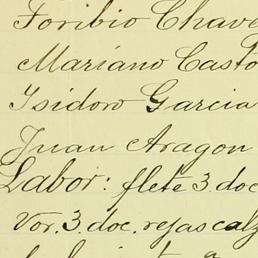 Toribio Chave
Mariano Casto
Isidoro Garcia
Juan Aragon
Labor: flete 3. doc
Vor. 3. doc. rejas calz